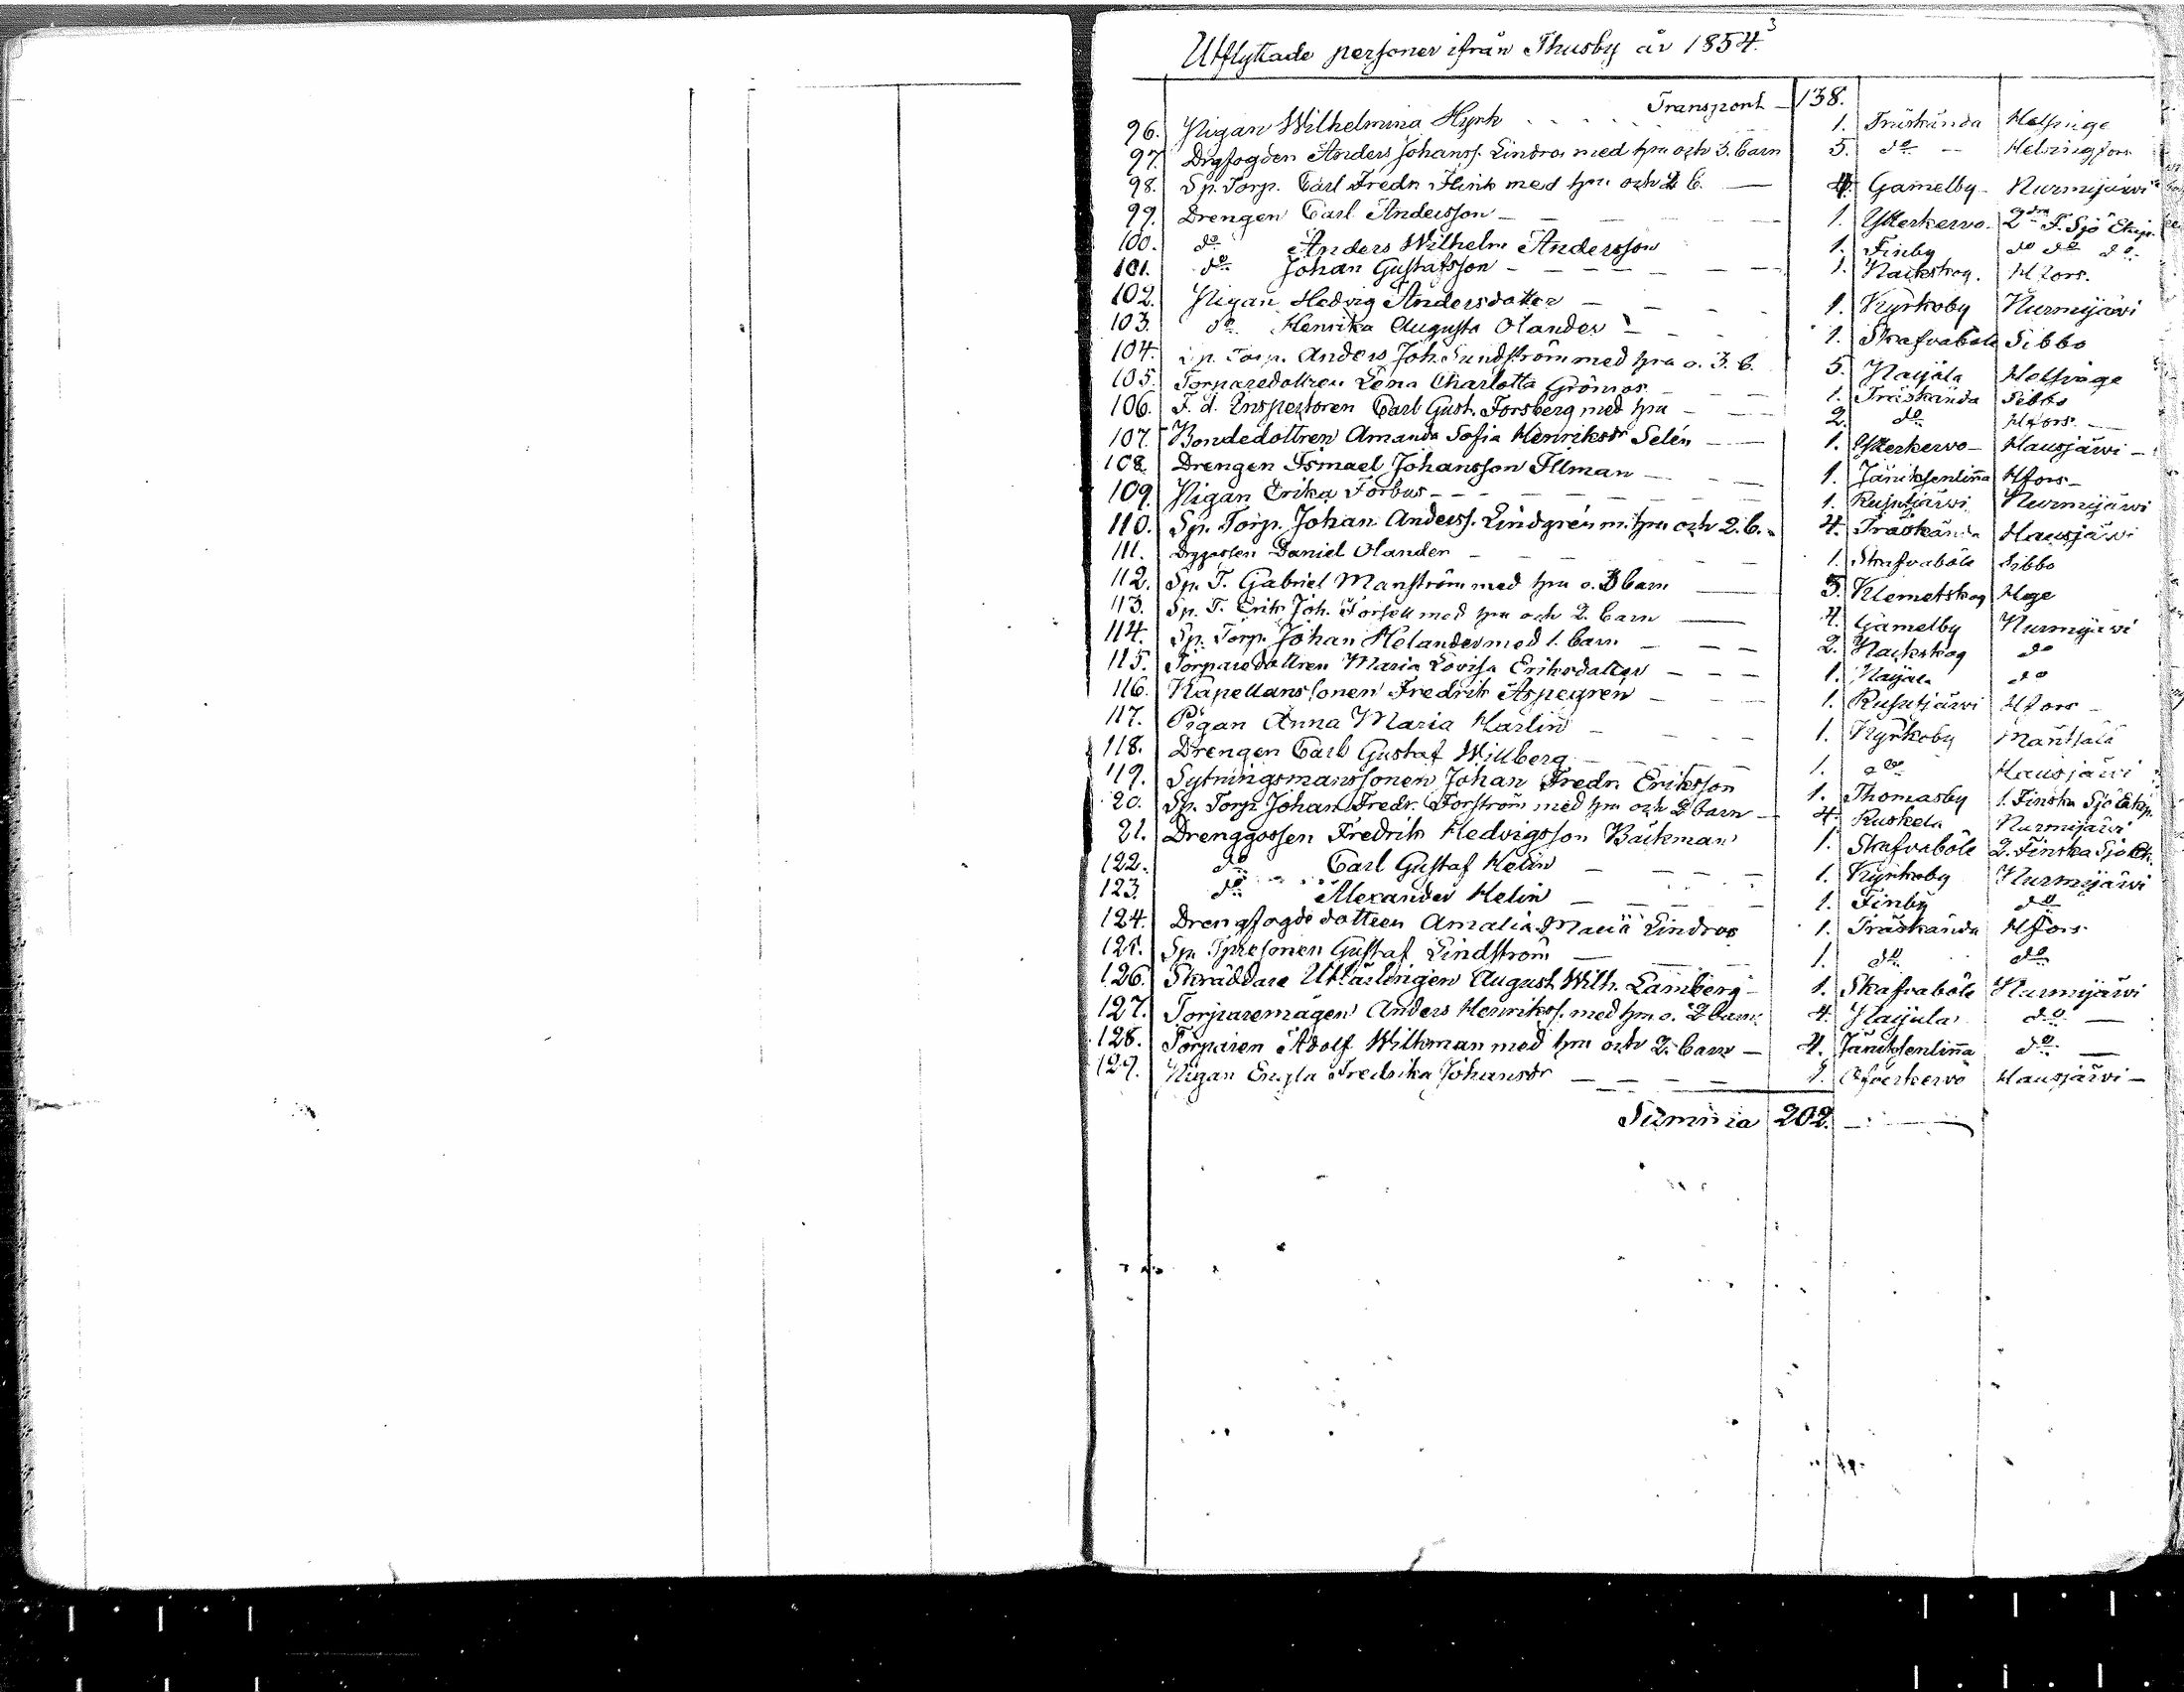 3
Utflyttade personer ifrån Thusby år 1854.
Transport - 138.
96. Pigan Wilhelmina Hyrk 1. Träskända Helsinge
97. Drgfogden Anders Johanss. Lindros med hru och 3. barn 5. do Helsingfors
98. Sp. Torp. Carl Fredr. Flink med hru och 2 b. 4. Gamelby Nurmijärvi
99. Drengen Carl Andersson 1. Ytterkervo. 2dra F. Sjö Ekip.
100. do Anders Wilhelm Andersson 1. Finby do do do
101. do Johan Gustafsson 1. Nackskog. Hfors.
102. Pigan Hedvig Andersdotter 1. Kyrkoby Nurmijärvi
103. do Henrika Augusta Olander 1. Skafvaböle Sibbo
104. Sp. Torp. Anders Joh. Sundström med hru o. 3. b. 5. Paijala Helsinge
105. Torparedottren Lena Charlotta Grönroos 1. Träskända Sibbo
106. F. d. Inspectoren Carl Gust. Forsberg med hru 2. do Hfors.
107. Bondedottren Amanda Sofia Henriksdr Selén 1. Ytterkervo Hausjärvi
108. Drengen Ismael Johansson Illman 1. Jäniksenlinna Hfors
109. Pigan Erika Forbus 1. Rusutjärvi Nurmijärvi
110. Sp. Torp. Johan Anderss. Lindgrén m. hru och 2. b. 4. Träskända Hausjärvi
111. Drggossen Daniel Olander 1. Skafvaböle Sibbo
112. Sp. T. Gabriel Manström med hru o. 3 barn 5. Klemetskog Hge
113. Sp. T. Erik Joh. Forsell med hru och 2. barn 4. Gamelby Nurmijärvi
114. Sp. Torp. Johan Helander med 1. barn 2. Nackskog do
115. Torparedottren Maria Lovisa Eriksdotter 1. Paijala do
116. Kapellanssonen Fredrik Aspegrén 1. Rusutjärvi Hfors
117. Pigan Anna Maria Harlin 1. Kyrkoby Mäntsälä
118. Drengen Carl Gustaf Willberg 1. do Hausjärvi
119. Sytningsmanssonen Johan Fredr. Eriksson 1. Thomasby 1. Finska Sjö Ekip.
20. Sp. Torp. Johan Fredr. Forström med hru och 2 barn 4. Ruskela Nurmijärvi
21. Drenggossen Fredrik Hedvigsson Bäckman 1. Skafvaböle 2. Finska Sjö Ek.
122. do Carl Gustaf Helin 1. Kyrkoby Nurmijärvi
123. do Alexander Helin 1. Finby do
124. Drengfogdedottren Amalia Maria Lindros 1. Träskända Hfors
125. Sp. Tpresonen Gustaf Lindström 1. do do
126. Skräddare Utlärlingen August Wilh. Lamberg 1. Skafvaböle Nurmijärvi
127. Torparemågen Anders Henrikss. med hru o. 2 barn. 4. Paijala do
128. Torparen Adolf Wilkman med hru och 2. barn 4. Jäniksenlinna do
129. Pigan Engla Fredrika Johansdr 1. Öfverkervo Hausjärvi
Summa 202.